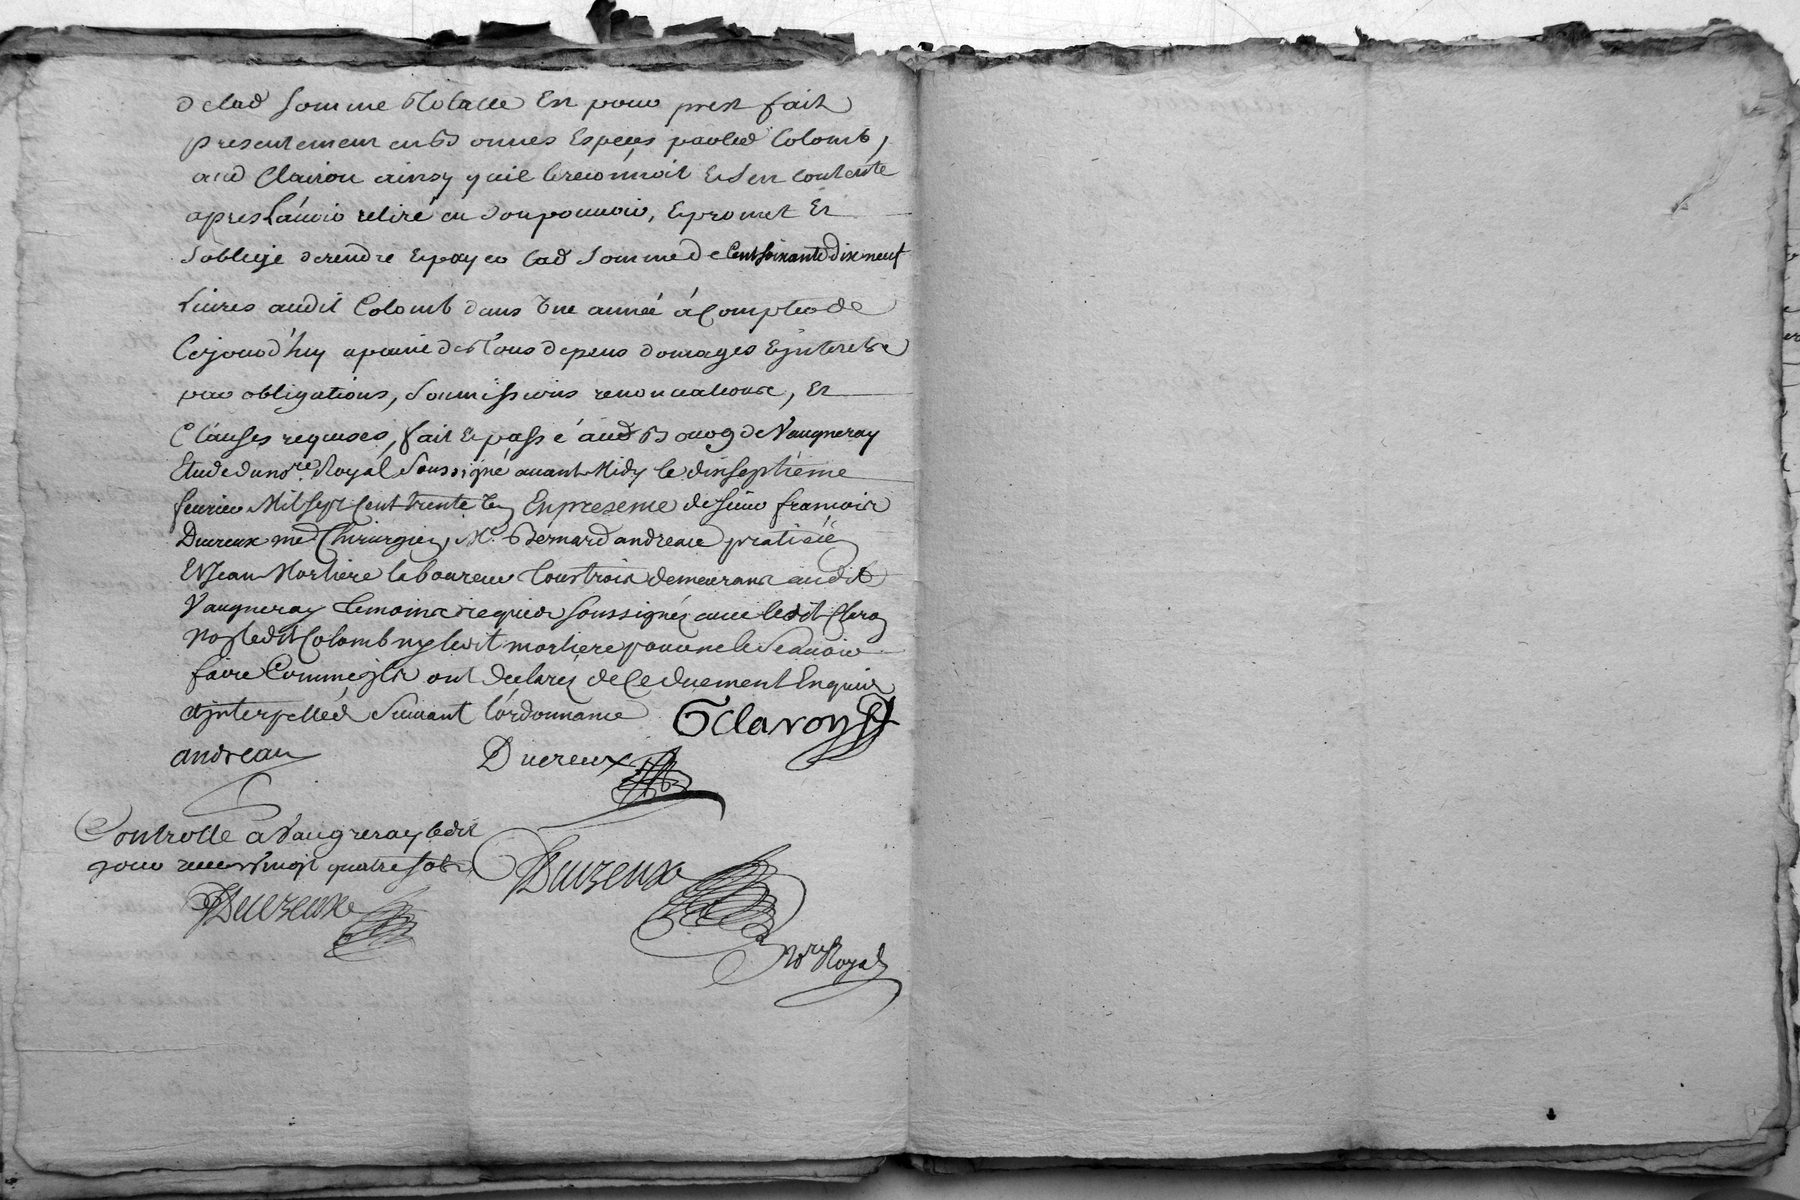 de lad somme totalle Est pour prest fait
presentement en Bonnes Especes par led Colomb,
aud Clairon ainsy quil le reconnoit Et sen contente
apres Lauoir retiré en son pouuoir, Et promet Et
soblige de rendre Et payer lad somme de Cent soixante dix neuf
Liures audit Colomb dans Une année á Compter de
Cejourd'huy a peine de Tous depens domages Et jnterets
par obligations, soumissions renonciations, Et
Clauses requises, fait Et passé aud Bourg de Vaugneray
Etude du nore Royal soussigné auant Midy le dixseptieme
feurier Mil sept Cent trente Un En presence de sieur francois
Ducreux me Chirurgien, Me Bernard andreau praticien
Et Jean Mortiere laboureur tous trois demeurans audit
Vaugneray temoins requis soussignéz auec ledit Claron
non ledit Colomb ny ledit mortiere pour ne le scauoir
faire Comme jls ont declaréz de Ce duement Enquis
et jnterpelléd suiuant l'ordonnance GClaron
andreau Ducreux
Controlle a Vaugneray ledit
jour receu Vingt quatre sols
Ducreux
Ducreux
Nore Royal